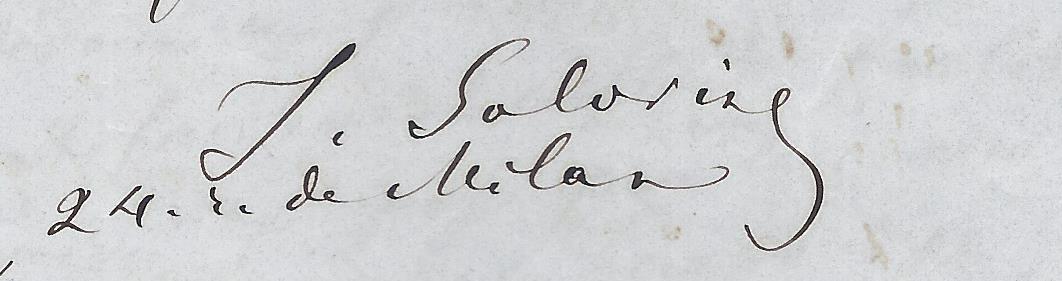 J. Salvring
24. r. de Milan